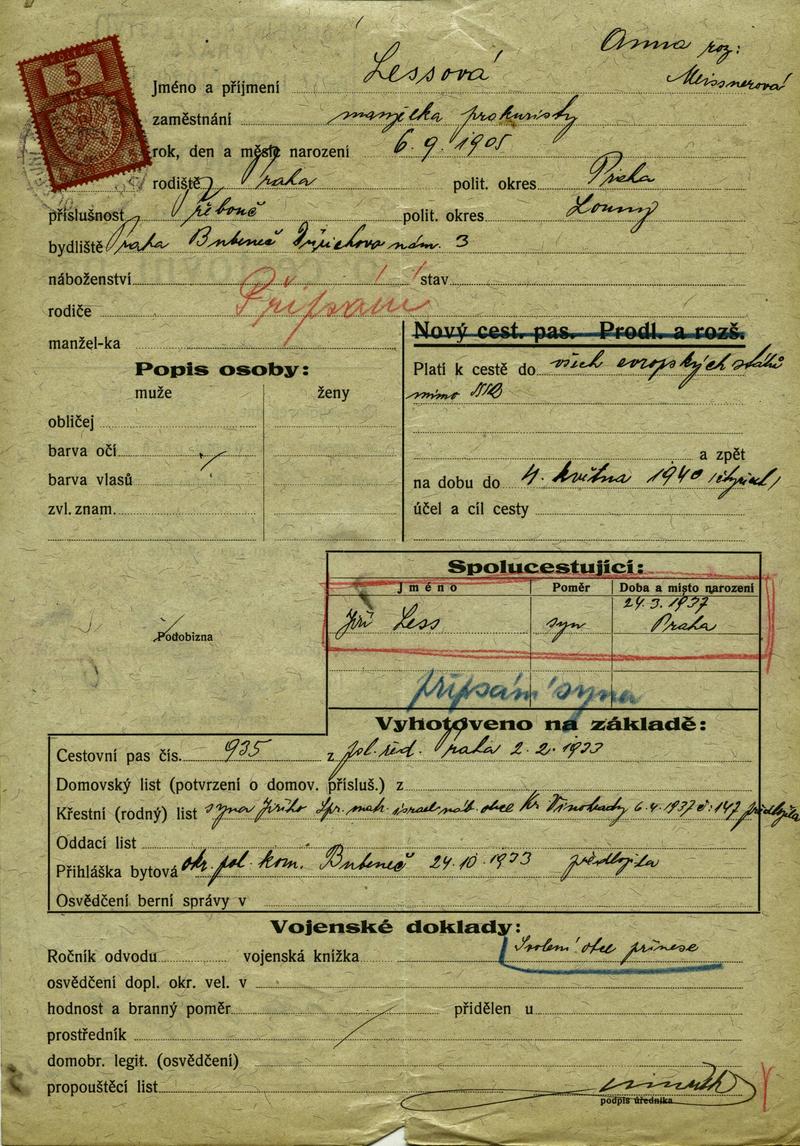 KOLEK
5
Kčs
Jméno a příjmení Lessová Anna roz: Meissnerová
zaměstnání manželka prokuristy
rok, den a město narození 6. 9. 1905
rodiště Praha polit. okres Praha
příslušnost Třeboc polit. okres Louny
bydliště Praha Bubeneč nám. 3
náboženství stav
rodiče
Připsání
manžel-ka
Nový cest. pas. Prodl. a rozš.
Popis osoby:
muže ženy
obličej
barva očí
barva vlasů
zvl. znam.
Platí k cestě do všech evropských států
mimo
a zpět
na dobu do 4. května 1940
účel a cíl cesty
Podobizna
Spolucestující:
Jméno Poměr Doba a místo narození
Jiří Less syn 24. 3. 1937 Praha
připsání syna
Vyhotoveno na základě:
Cestovní pas čís. 935 z pol. řed. Praha 2. 2. 1933
Domovský list (potvrzení o domov. přísluš.) z
Křestní (rodný) list syna Jiřího Spr. mat. israel. náb. obce Kr. Vinohrady 6. 4. 1937 č: 147 předložila
Oddací list
Přihláška bytová okr. pol. kom. Bubeneč 24. 10. 1933 předložila
Osvědčení berní správy v
Vojenské doklady:
Ročník odvodu vojenská knížka
Svolení otce přinese
osvědčení dopl. okr. vel. v
hodnost a branný poměr přidělen u
prostředník
domobr. legit. (osvědčení)
propouštěcí list
podpis úředníka